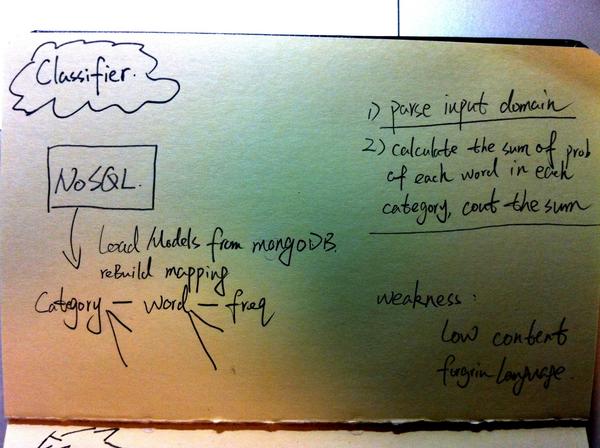 Classifier.
NoSQL.
Load Models from mongoDB.
reBuild mapping
Category — word — freq
1) parse input domain
2) calculate the sum of prob
of each word in each
category, cout the sum
weakness:
Low content
forgrin Language.